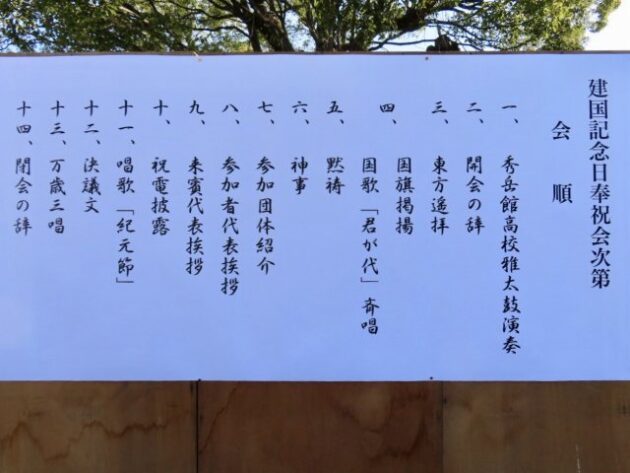 建国記念日奉祝会次第
会順
一、秀岳館高校雅太鼓演奏
二、開会の辞
三、東方遥拝
国旗掲揚
四、国歌「君が代」斉唱
五、黙祷
六、神事
七、参加団体紹介
八、参加者代表挨拶
九、来賓代表挨拶
十、祝電披露
十一、唱歌「紀元節」
十二、決議文
十三、万歳三唱
十四、閉会の辞